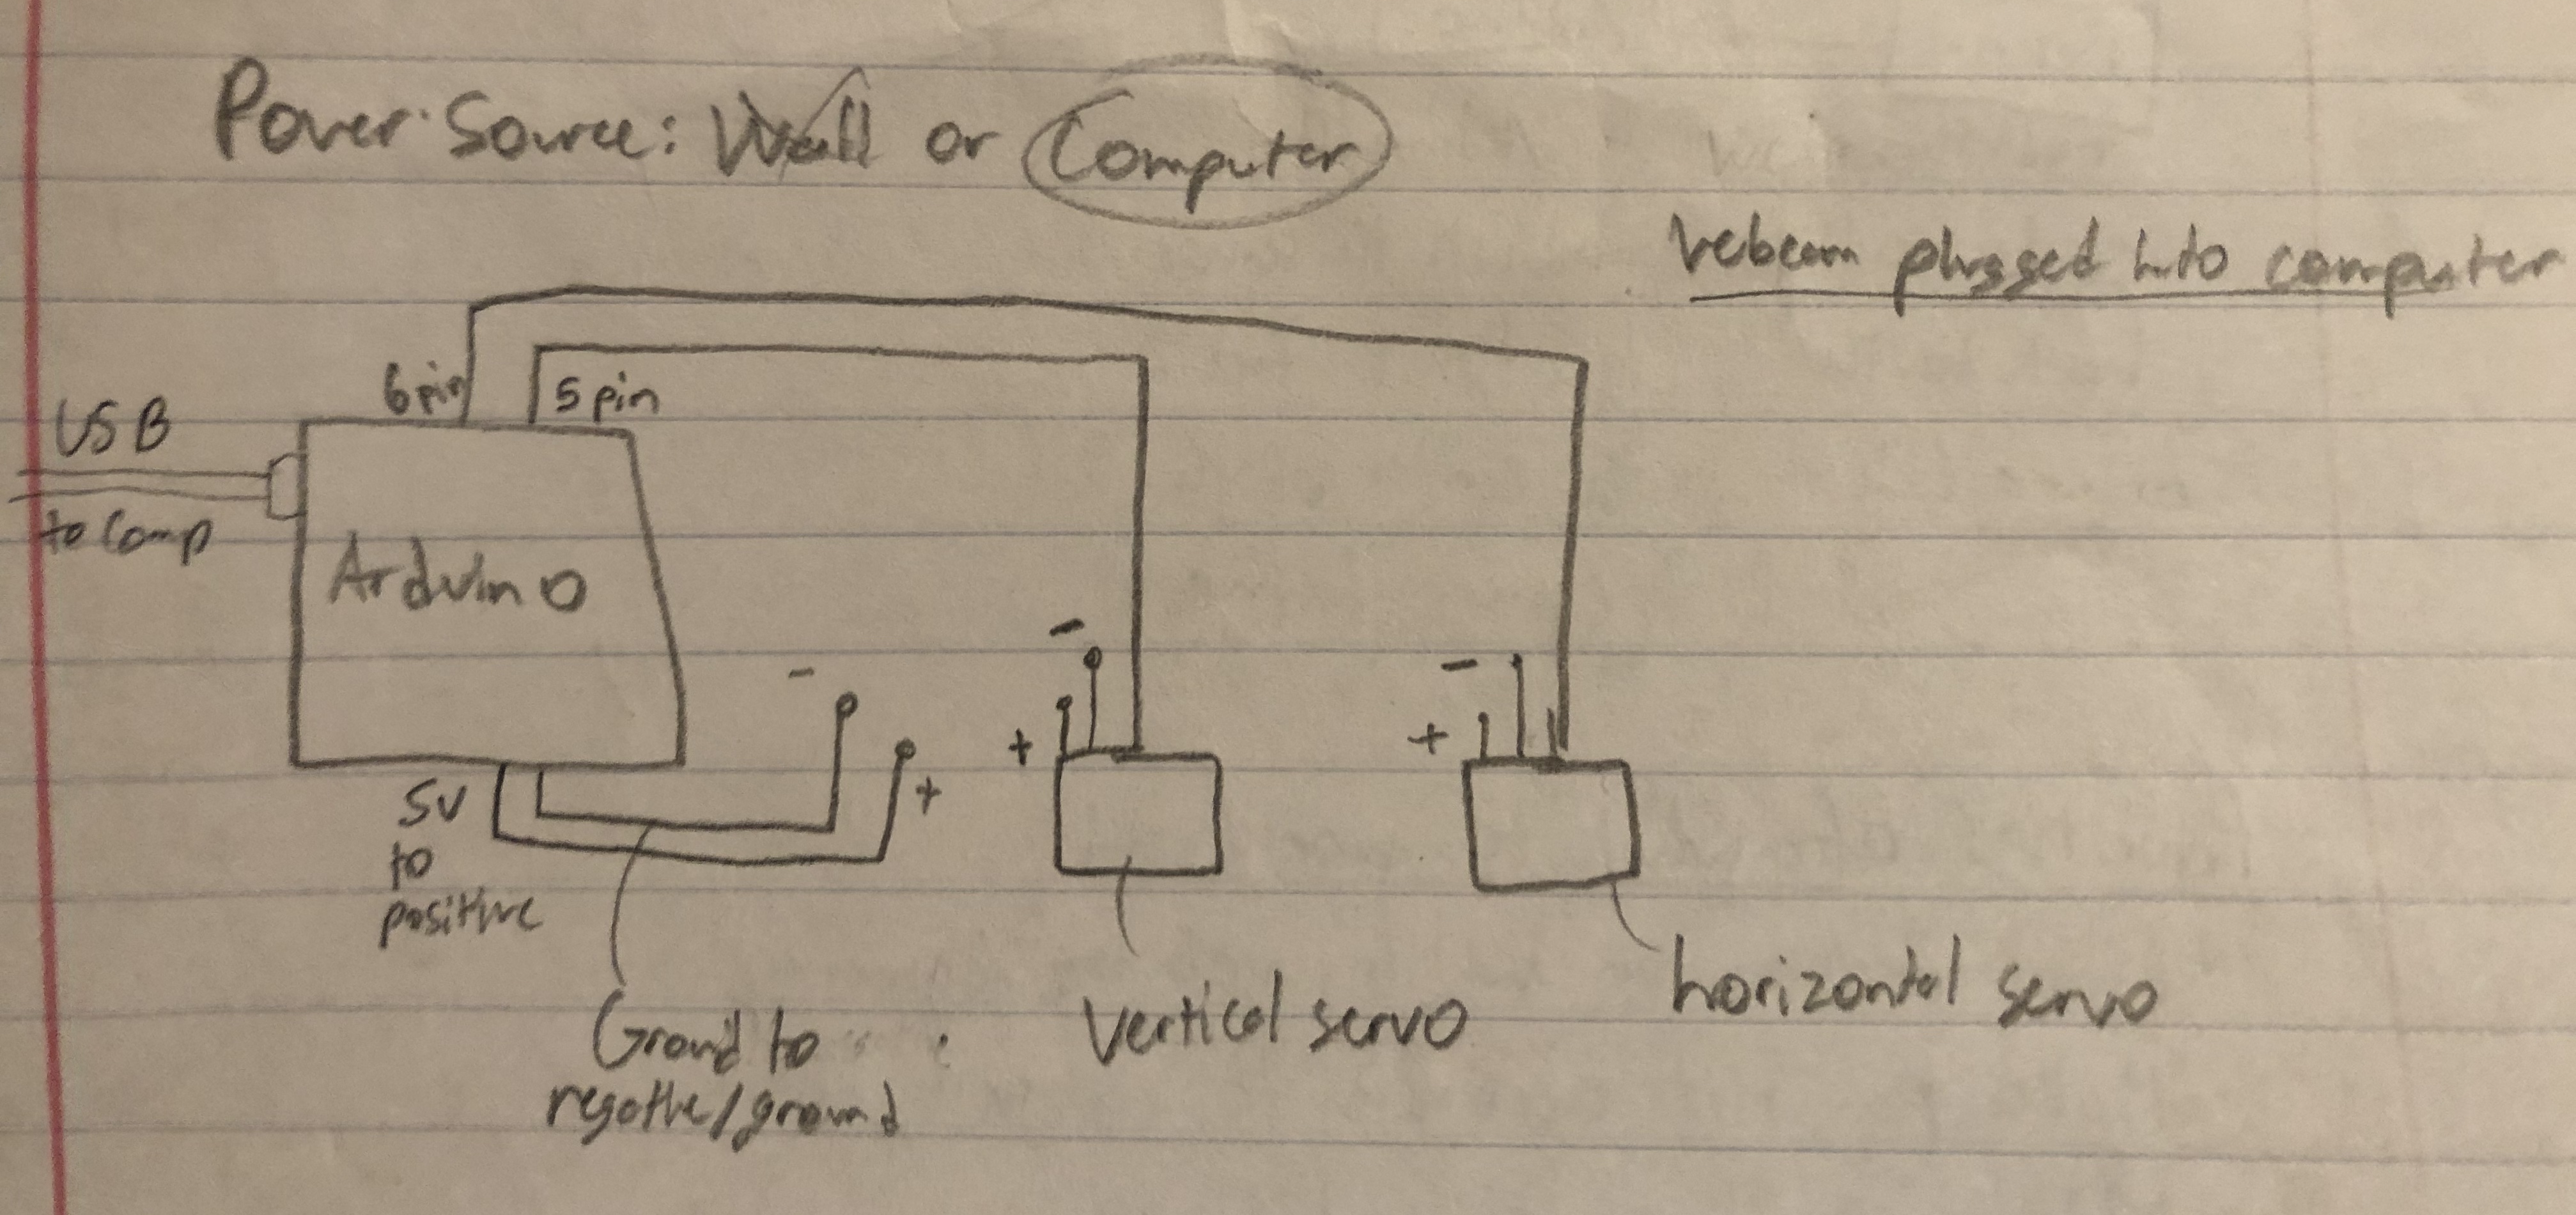 Power Source: Wall or Computer
Webcam plugged into computer
6 pin
5 pin
USB
to Comp
Arduino
-
-
-
+
+
+
5V
to
positive
Ground to
negative/ground
Vertical servo
horizontal servo